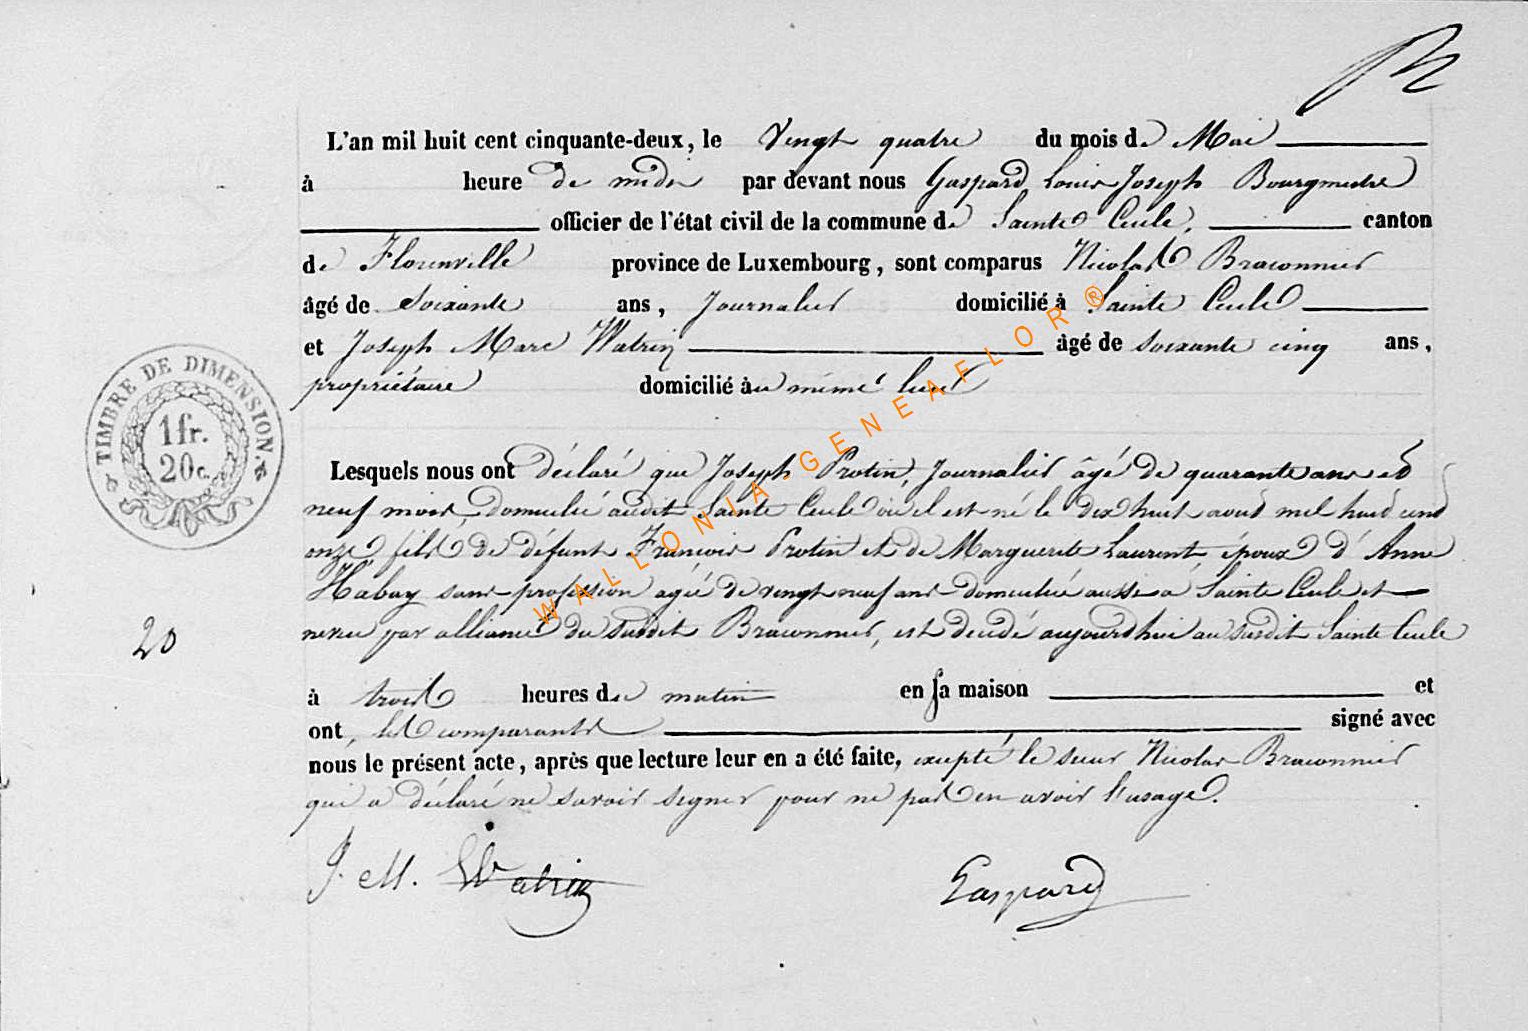 L'an mil huit cent cinquante-deux, le Vingt quatre du mois de Mai
à heure de midi par devant nous Gaspard Louis Joseph Bourgmestre
officier de l'état civil de la commune de Sainte Cecile, canton
de Florenville province de Luxembourg, sont comparus Nicolas Braconnier
âgé de Soixante ans, Journalier domicilié à Sainte Cecile
et Joseph Marc Watrin âgé de soixante cinq ans,
propriétaire domicilié au même lieu
Lesquels nous ont déclaré que Joseph Protin, Journalier âgé de quarante ans et
neuf mois, domicilié audit Sainte Cecile où il est né le dix huit aout mil huit cent
onze fils de défunt François Protin et de Marguerite Laurent, époux d'Anne
Habay sans profession agée de vingt neuf ans domiciliée aussi à Sainte Cecile et
neveu par alliance du susdit Braconnier, est décédé aujourd'hui au susdit Sainte Cecile
à trois heures du matin en sa maison et
ont, les comparants signé avec
nous le présent acte, après que lecture leur en a été faite, excepté le sieur Nicolas Braconnier
qui a déclaré ne savoir signer pour ne pas en avoir l'usage.
J. M. Watrin Gaspard
TIMBRE DE DIMENSION.
1 fr.
20 c.
20
WALLONIA-GENEAFLOR ®